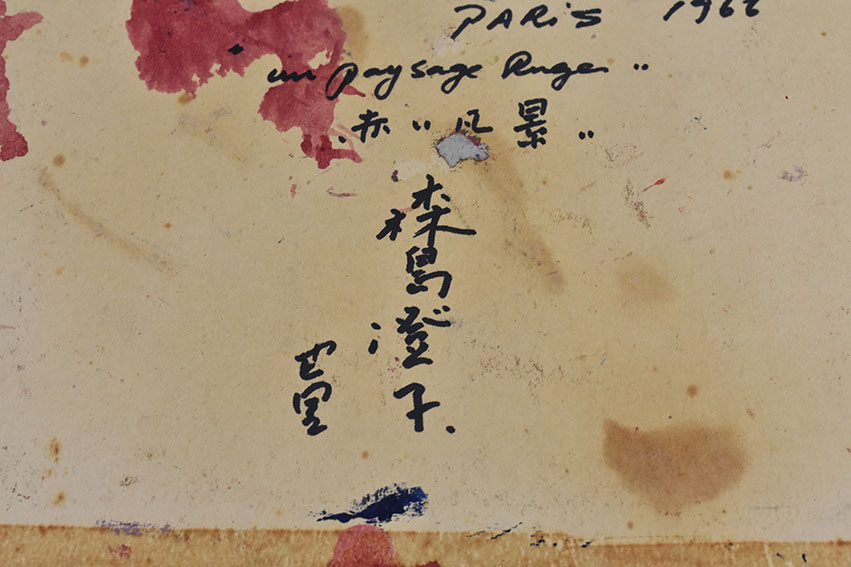 PARIS
"un paysage Ruge"
"赤い風景"
森島澄子.